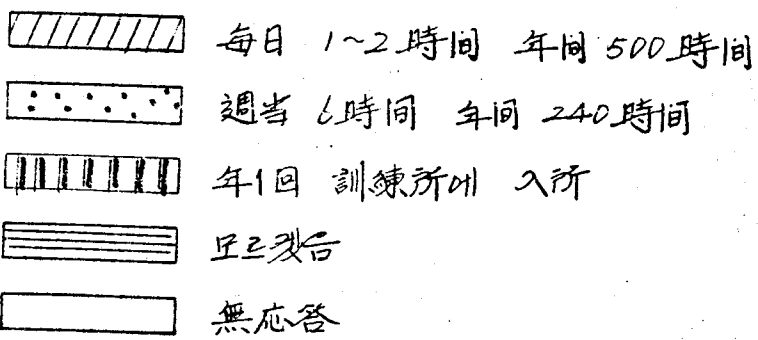 毎日 1~2時間 年间 500時间
週当 6時間 年间 240時间
年1回 訓練所에 入所
모르겠음
無応答